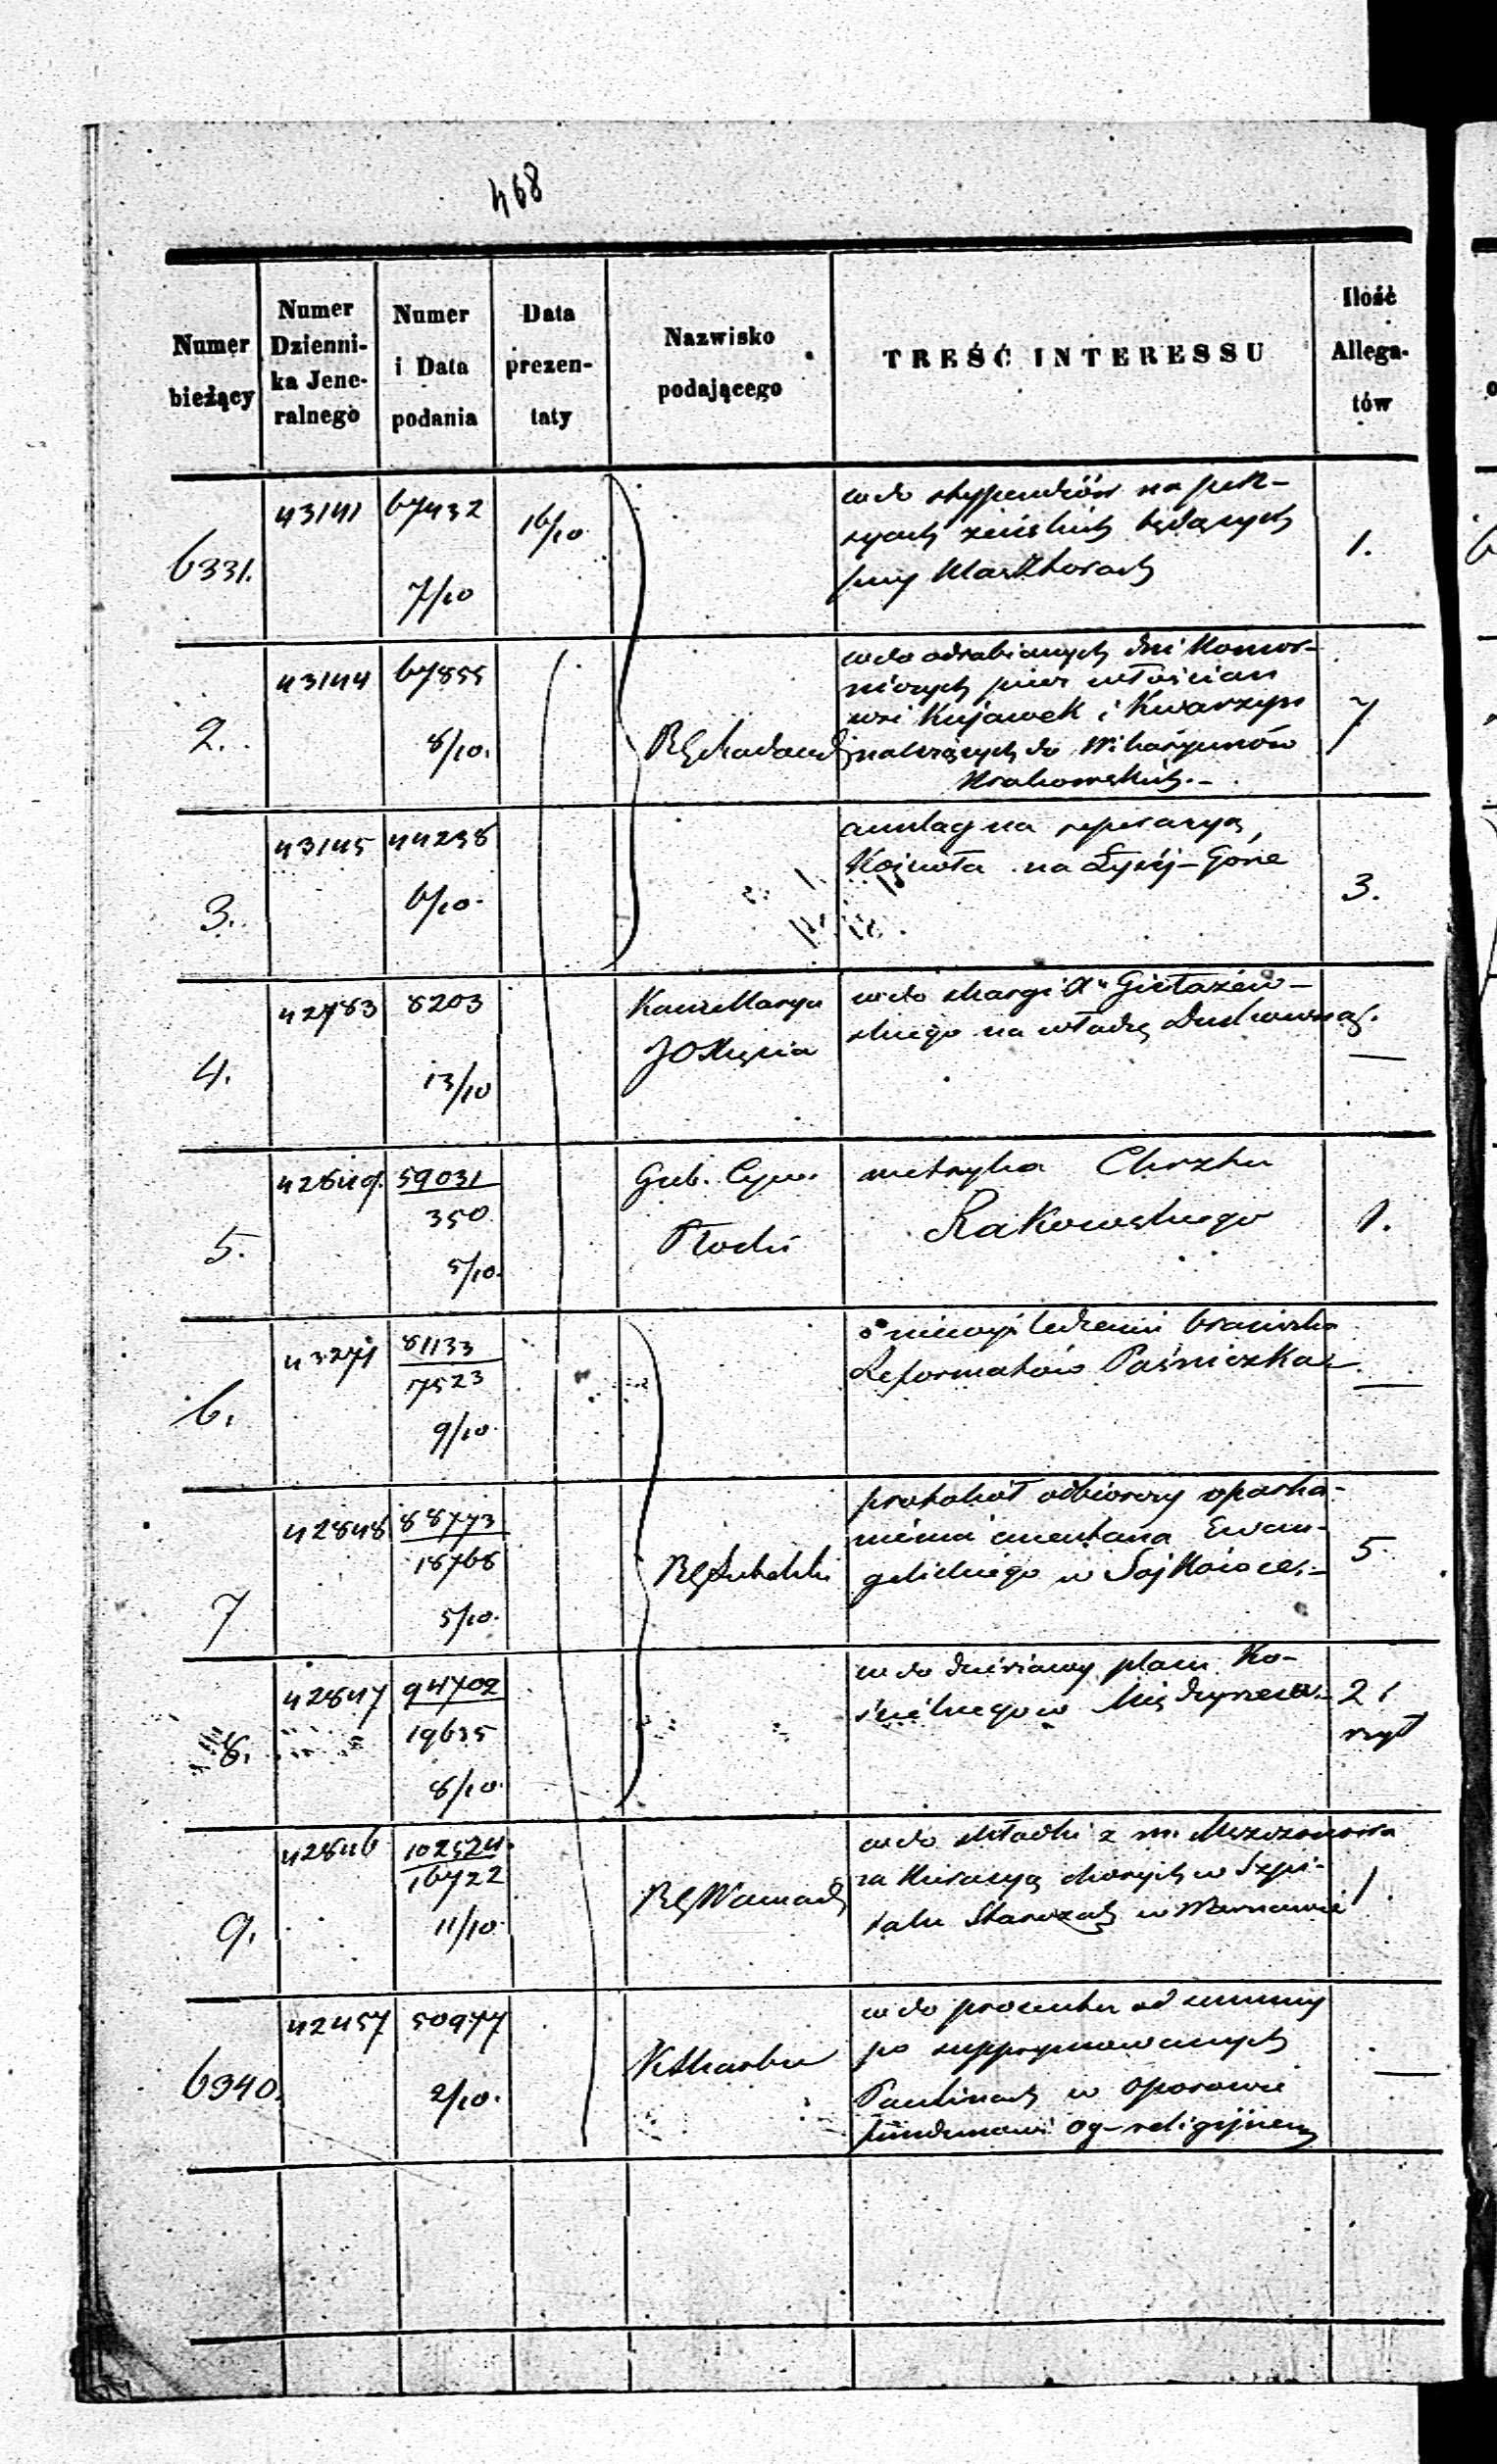 468
Numer bieżący
Numer Dzienni- ka Jene- ralnego
Numer i Data podania
Data prezen- taty
Nazwisko podającego
TREŚĆ INTERESSU
Ilość Allega- tów
6331.
43141
67432
7/10
16/10
wdo stypendiów na pen-
syach żeńskich będących
przy Klasztorach
1.
2.
43144
67855
8/10.
RG Radoms
wdo odrabianych dni Komor-
niczych przez włościan
wsi Kujawek i Kwarzyn
należących do Wikaryuszów
Krakowskich.-
7
3.
43145
44238
6/10.
anszlag na reperacyą
Kościoła na Łysej-Górze
3.
4.
42783
8203
13/10
Kancellarya
JO Xięcia
wdo skargi Xa
skiego na władzę Duchowną.
—
5.
42849.
59031
350
5/10.
Gub. Cyw.
Płocki
metryka Chrztu
Rakowskiego
1.
6.
43271
81133
17523
9/10.
o niewyśledzeniu braciszka
Reformatów Paśniczka
—
7
42848
88773
18768
5/10.
RG Lubelski
protokół odbiorczy oparka-
nienia cmentarza Ewan-
gelickiego w
5
8.
42847
94702
19635
8/10.
wdo dzierżawy placu Ko-
ścielnego w Międzyrzecu.
2 i
9.
42846
102524.
16722
11/10.
RG Warszaw
wdo składki z m. Mszczonowa
za kuracyą chorych w Szpi-
talu Starozak w Warszawie
1.
6340.
42457
50977
2/10.
K Skarbu
wdo procentu od summy
po supprymowanych
Paulinach w Oporowie
funduszowi og-religijnem
—